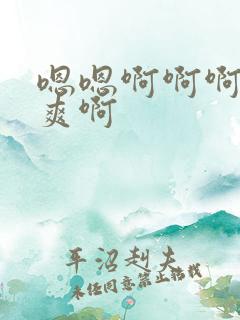 嗯嗯啊啊啊
爽啊
平沼赳夫
未经同意禁止转载